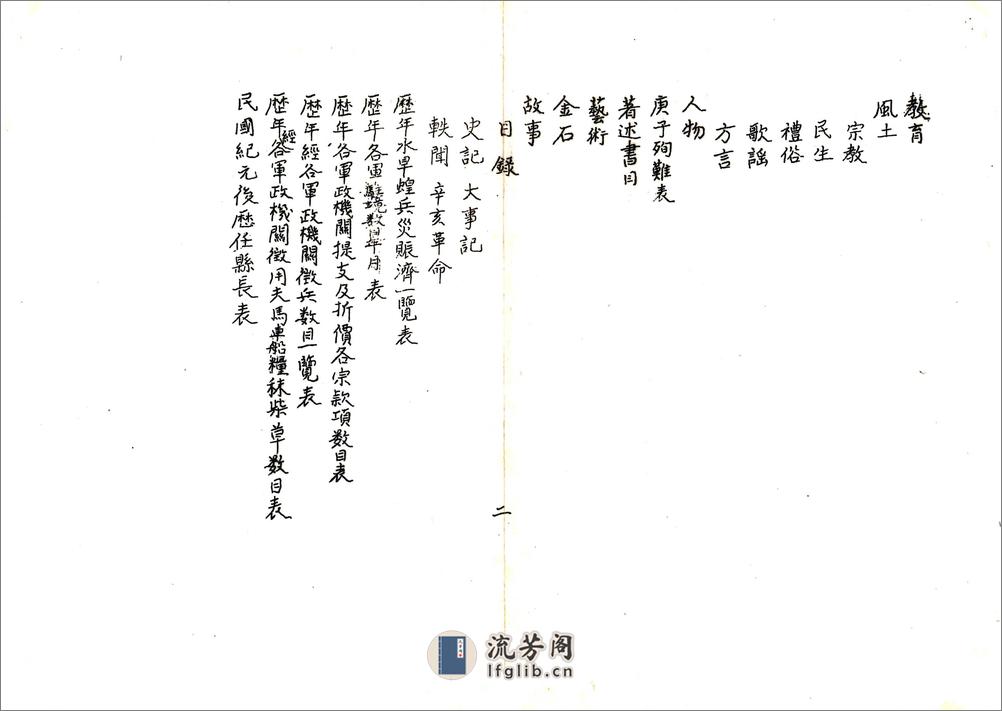 教育
風土
宗教
民生
禮俗
歌謡
方言
人物
庚子殉難表
著述書目
藝術
金石
故事
目錄 二
史記 大事記
軼聞 辛亥革命
歷年水旱蝗兵災賑濟一覽表
歷年各軍數目年月表
歷年各軍政機關提支及折價各宗款項數目表
歷年經各軍政機關徵兵数目一覽表
歷年經各軍政機關徵用夫馬車船糧秣柴草数目表
民國紀元後歷任縣長表
流芳阁
lfglib.cn